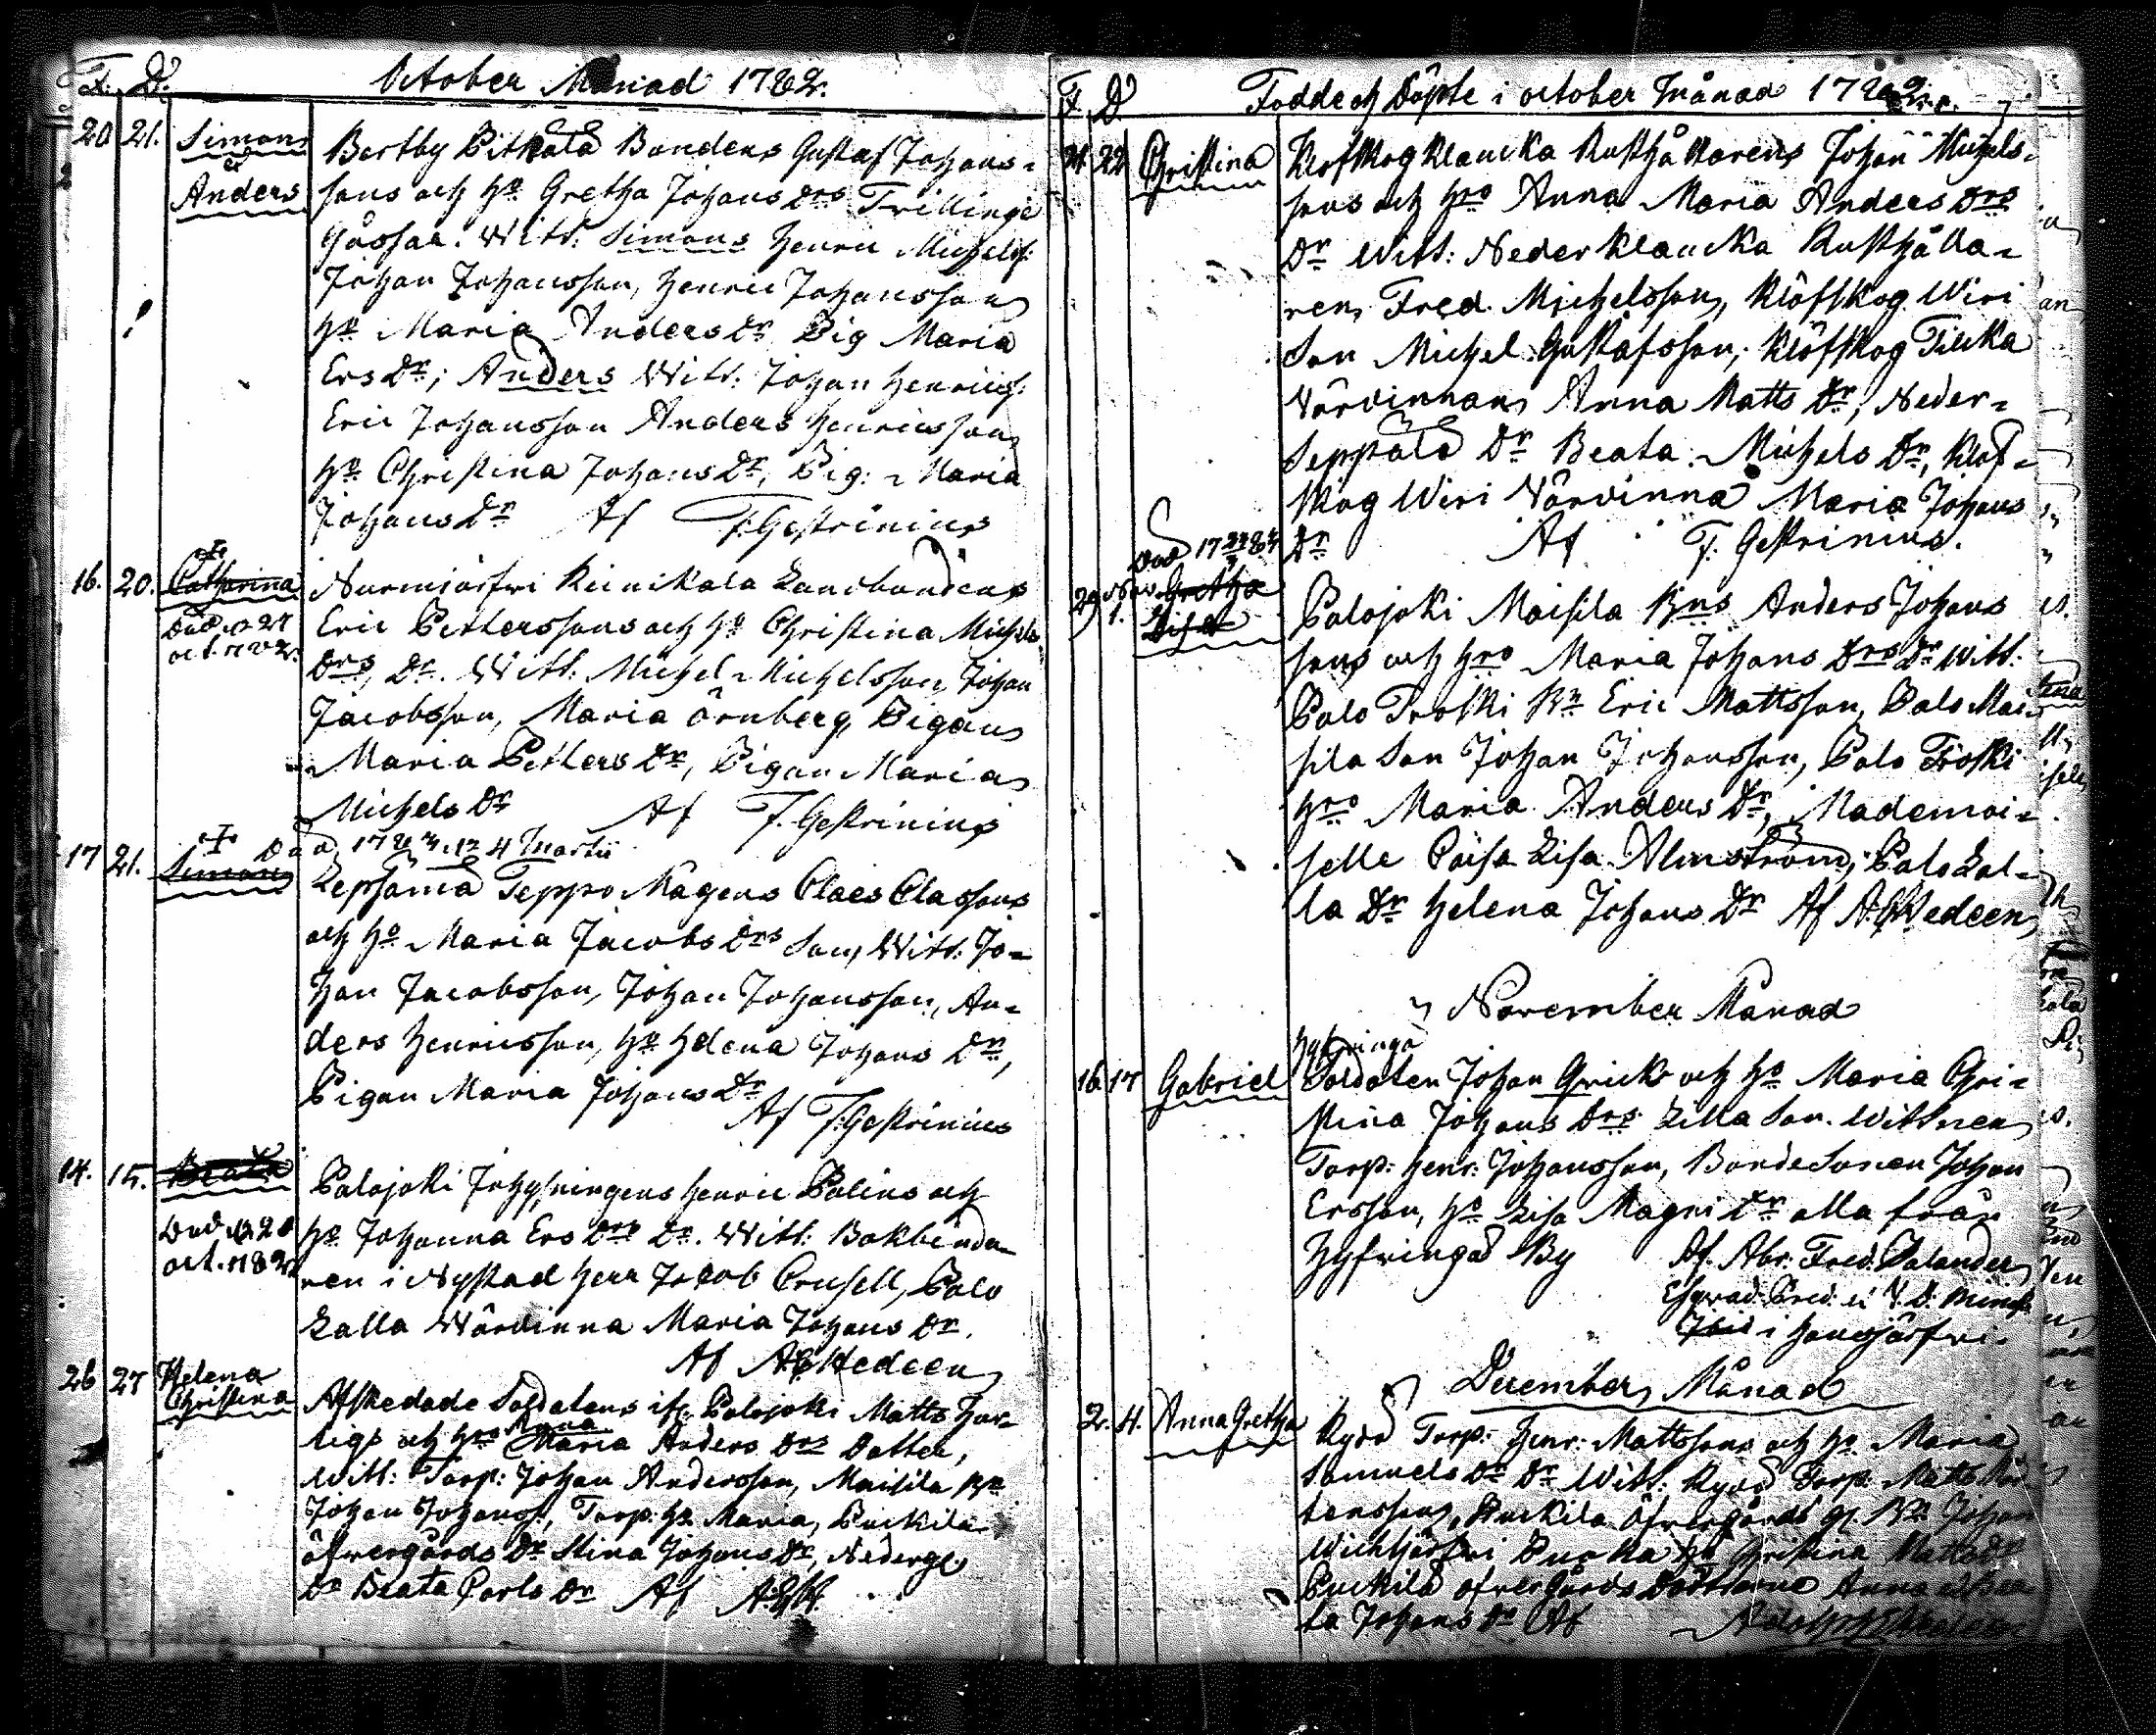 F. D. October Månad 1782.
20 21. Simon Bertby Pitkälä Bondens Gustaf Johans-
&
Anders sons och h:o Gretha Johans Drs Trillinge
Gossar. Witt: Simons Henric Michels:
Johan Johansson, Henric Johansson
h:o Maria Anders Dr Pig Maria
Ers Dr; Anders Witt: Johan Henrics:
Eric Johansson Anders Henricsson
h:o Christina Johans Dr, Pig: Maria
Johans Dr Af F. Gestrinius
16. 20. Catharina Nurmijärfvi Landbondens
Död 27 Eric Petterssons och h:o Christina Michels
oct. 1782. Drs, Dr. Witt: Michel Michelsson, Johan
Jacobsson, Maria Örnberg, Pigan
Maria Petters Dr, Pigan Maria
Michels Dr Af F. Gestrinius
Död 4 Martii
17 21. Simon Lepsämä Teppo Mågens Claes Classons
och h:o Maria Jacobs Drs Son, Witt: Jo-
han Jacobsson, Johan Johansson, An-
ders Henricsson, h:o Helena Johans Dr,
Pigan Maria Johans Dr
Af F. Gestrinius
14. 15. Beata Palojoki Henric Palins och
Död 20 h:o Johanna Ers Drs Dr. Witt: Bokbinda-
oct. 1782 ren i Nystad Herr Jacob Crusell, Palo
Lalla Wärdinna Maria Johans Dr.
Af A. Hedeen
26 27 Helena
Christina Afskedade Soldatens Palojoki Matts Här-
ligs och h:os Anna Maria Anders Drs Dotter,
Witt: Torp: Johan Andersson, Maisila Bn
Johan Johanss, Torp: h:o Maria, Puckila
öfvergårds Dr Stina Johans Dr, Nederg
Dr Beata Carls Dr Af A. H.
F. D. Födde och Döpte i october Månad 1782.
21. 22 Christina Klöfskog Klaucka Rusthållarens Johan Michels-
sons och h:ros Anna Maria Anders Drs
Dr Witt: Neder Klaucka Rusthålla-
ren, Fred. Michelsson, Klöfskog Wiri
Son Michel Gustafsson; Klöfskog Tilcka
Wärdinnan Anna Matts Dr; Neder-
Seppälä Dr Beata Michels Dr, Klöf-
skog Wiri Wärdinna Maria Johans
Dr Af F. Gestrinius.
Död 17
29 Nov. 1. Gretha Lisa Palojoki Maisila Bns Anders Johans
sons och h:ros Maria Johans Drs Dr Witt:
Palo Troski Bn Eric Mattsson, Palo Mai-
sila Son Johan Johansson, Palo Troski
h:ro Maria Anders Dr, Mademoi-
selle Caisa Lisa Almström, Palo Lal-
la Dr Helena Johans Dr Af A. Hedeen
November Månad
Hyfvinga
16. 17 Gabriel Soldaten Johan Qvick och h:o Maria Chri-
stina Johans Drs Lilla Son. Wittnen
Torp: Henr: Johansson, Bonde Sonen Johan
Ersson, h:o Lisa Magni Dr alla från
Hyfvinga By Af. Abr. Fred. Salander
i Hausjärfvi.
December Månad
2. 4. Anna Gretha Torp: Henr: Mattsons och h:o Maria
Samuels Dr Dr Witt: Torp: Matts Mår-
tensson, Puckila Öfvergårds Bn Johan
Wichtjärfvi Pucka Christina Matts Dr
Puckila öfvergårds Döttrarne Anna & Bea-
ta Johans Dr Af Adolph Hedeen